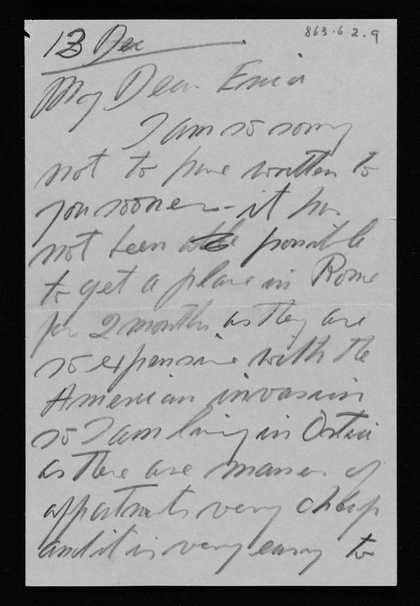 863.6.2.9
13 Dec
My Dear Erica
I am so sorry
not to have written to
you sooner - it has
not been possible
to get a place in Rome
for 2 months as they are
so expensive with the
American invasion
so I am living in Ostia
as there are masses of
appartments very cheap
and it is very easy to